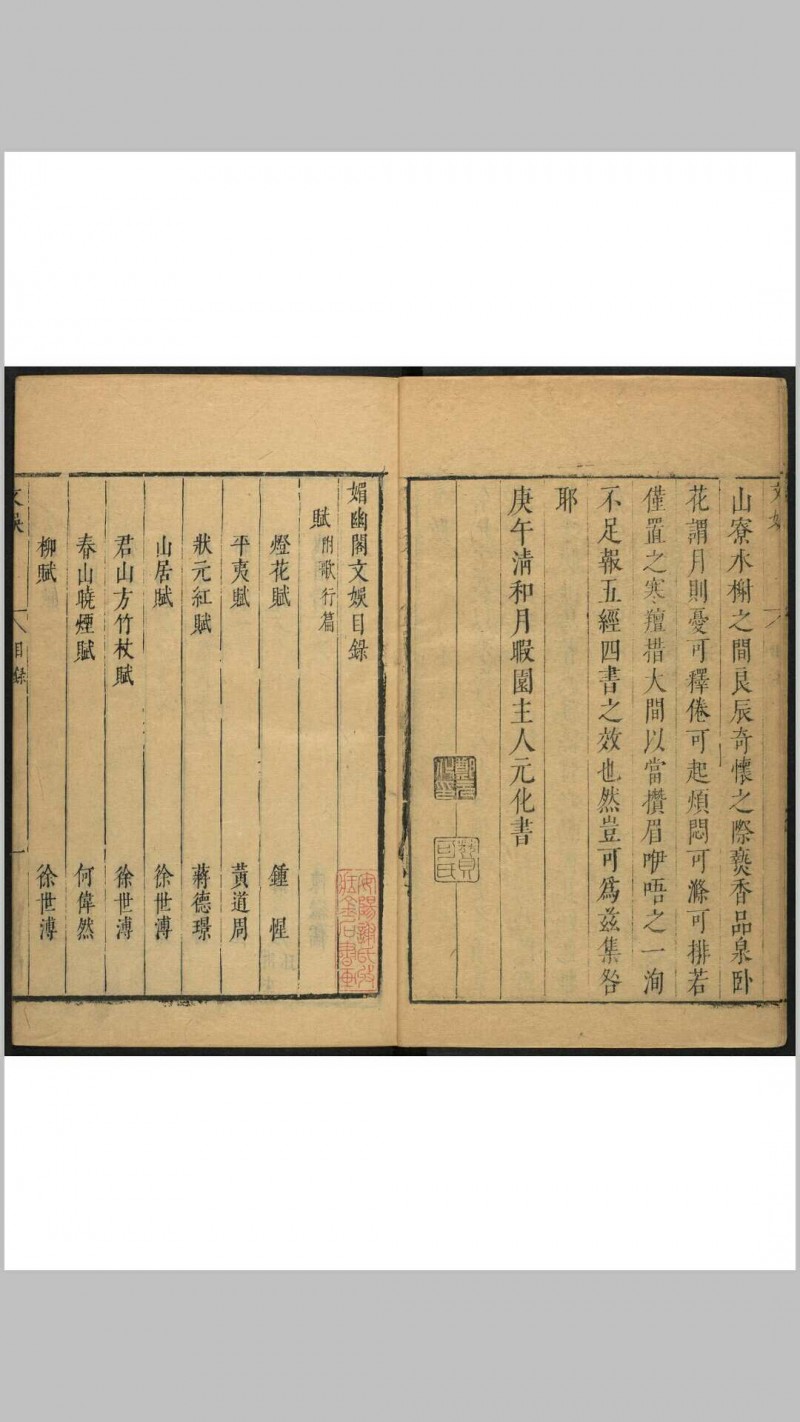 山寮水榭之間良辰奇懷之際爇香品泉臥
花謂月則憂可釋倦可起煩悶可滌可排若
僅置之寒氊措大間以當攢眉咿唔之一洵
不足報五經四書之效也然豈可為茲集咎
耶
庚午清和月暇園主人元化書
媚幽閣文娛目錄
賦 附歌行篇
燈花賦 鍾惺
平夷賦 黃道周
狀元紅賦 蔣德璟
山居賦 徐世溥
君山方竹杖賦 徐世溥
春山曉煙賦 何偉然
柳賦 徐世溥
文娛 目錄 一